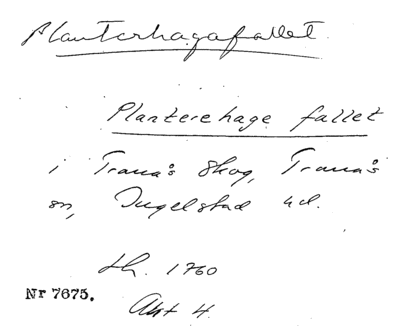 Planterhagafallet.
Planterehage fallet
i Tranås Skog, Tranås
sn, Ingelstad hd.
LH. 1760
Nr 7675.
Akt 4.